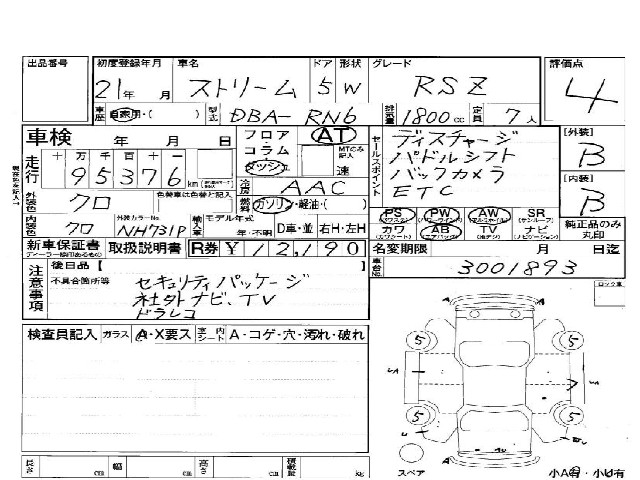 出品番号 初度登録年月 車名 ドア 形状 グレード 評価点
21年 月 ストリーム 5 W RSZ 4
車歴 自家用・( ) 型式 DBA-RN6 排気量 1800cc 定員 7人
車検 年 月 日 フロア・コラム ダッシュ AT MTのみ記入 速
セールスポイント ディスチャージ
パドルシフト
バックカメラ
ETC
[外装] B
[内装] B
走行 十万千百十一 95376km
冷房 AAC
外装色 クロ 色替車は色替と記入 燃料 ガソリン・軽油・( )
内装色 クロ 外装カラーNo. NH731P 輸入車 モデル年式 年・不明 D車・並 右H・左H
PS PW AW SR
カワ AB TV ナビ 純正品のみ丸印
新車保証書 取扱説明書 R券 ¥12,190 名変期限 月 日迄
注意事項 後日品【 】
不具合箇所等 セキュリティパッケージ
社外ナビ、TV
ドラレコ
車台No. 3001893
ロック車
検査員記入 ガラス A・X要ス 室内シート A・コゲ・穴・汚れ・破れ
5 5
5 5
A
UA
A
スペア
小A有・小U有
長さ cm 幅 cm 高さ cm 積載量 kg